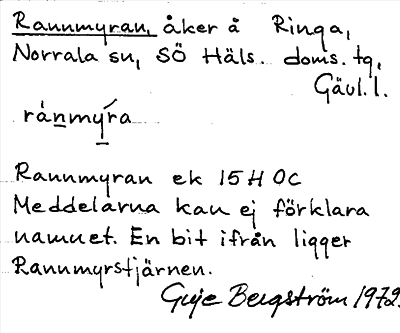 Rannmyran, åker å Ringa,
Norrala sn, SÖ Häls. doms. tg,
Gävl. l.
ránmýra
Rannmyran ek 15 H OC
Meddelarna kan ej förklara
namnet. En bit ifrån ligger
Rannmyrstjärnen.
Guje Bergström 1972.